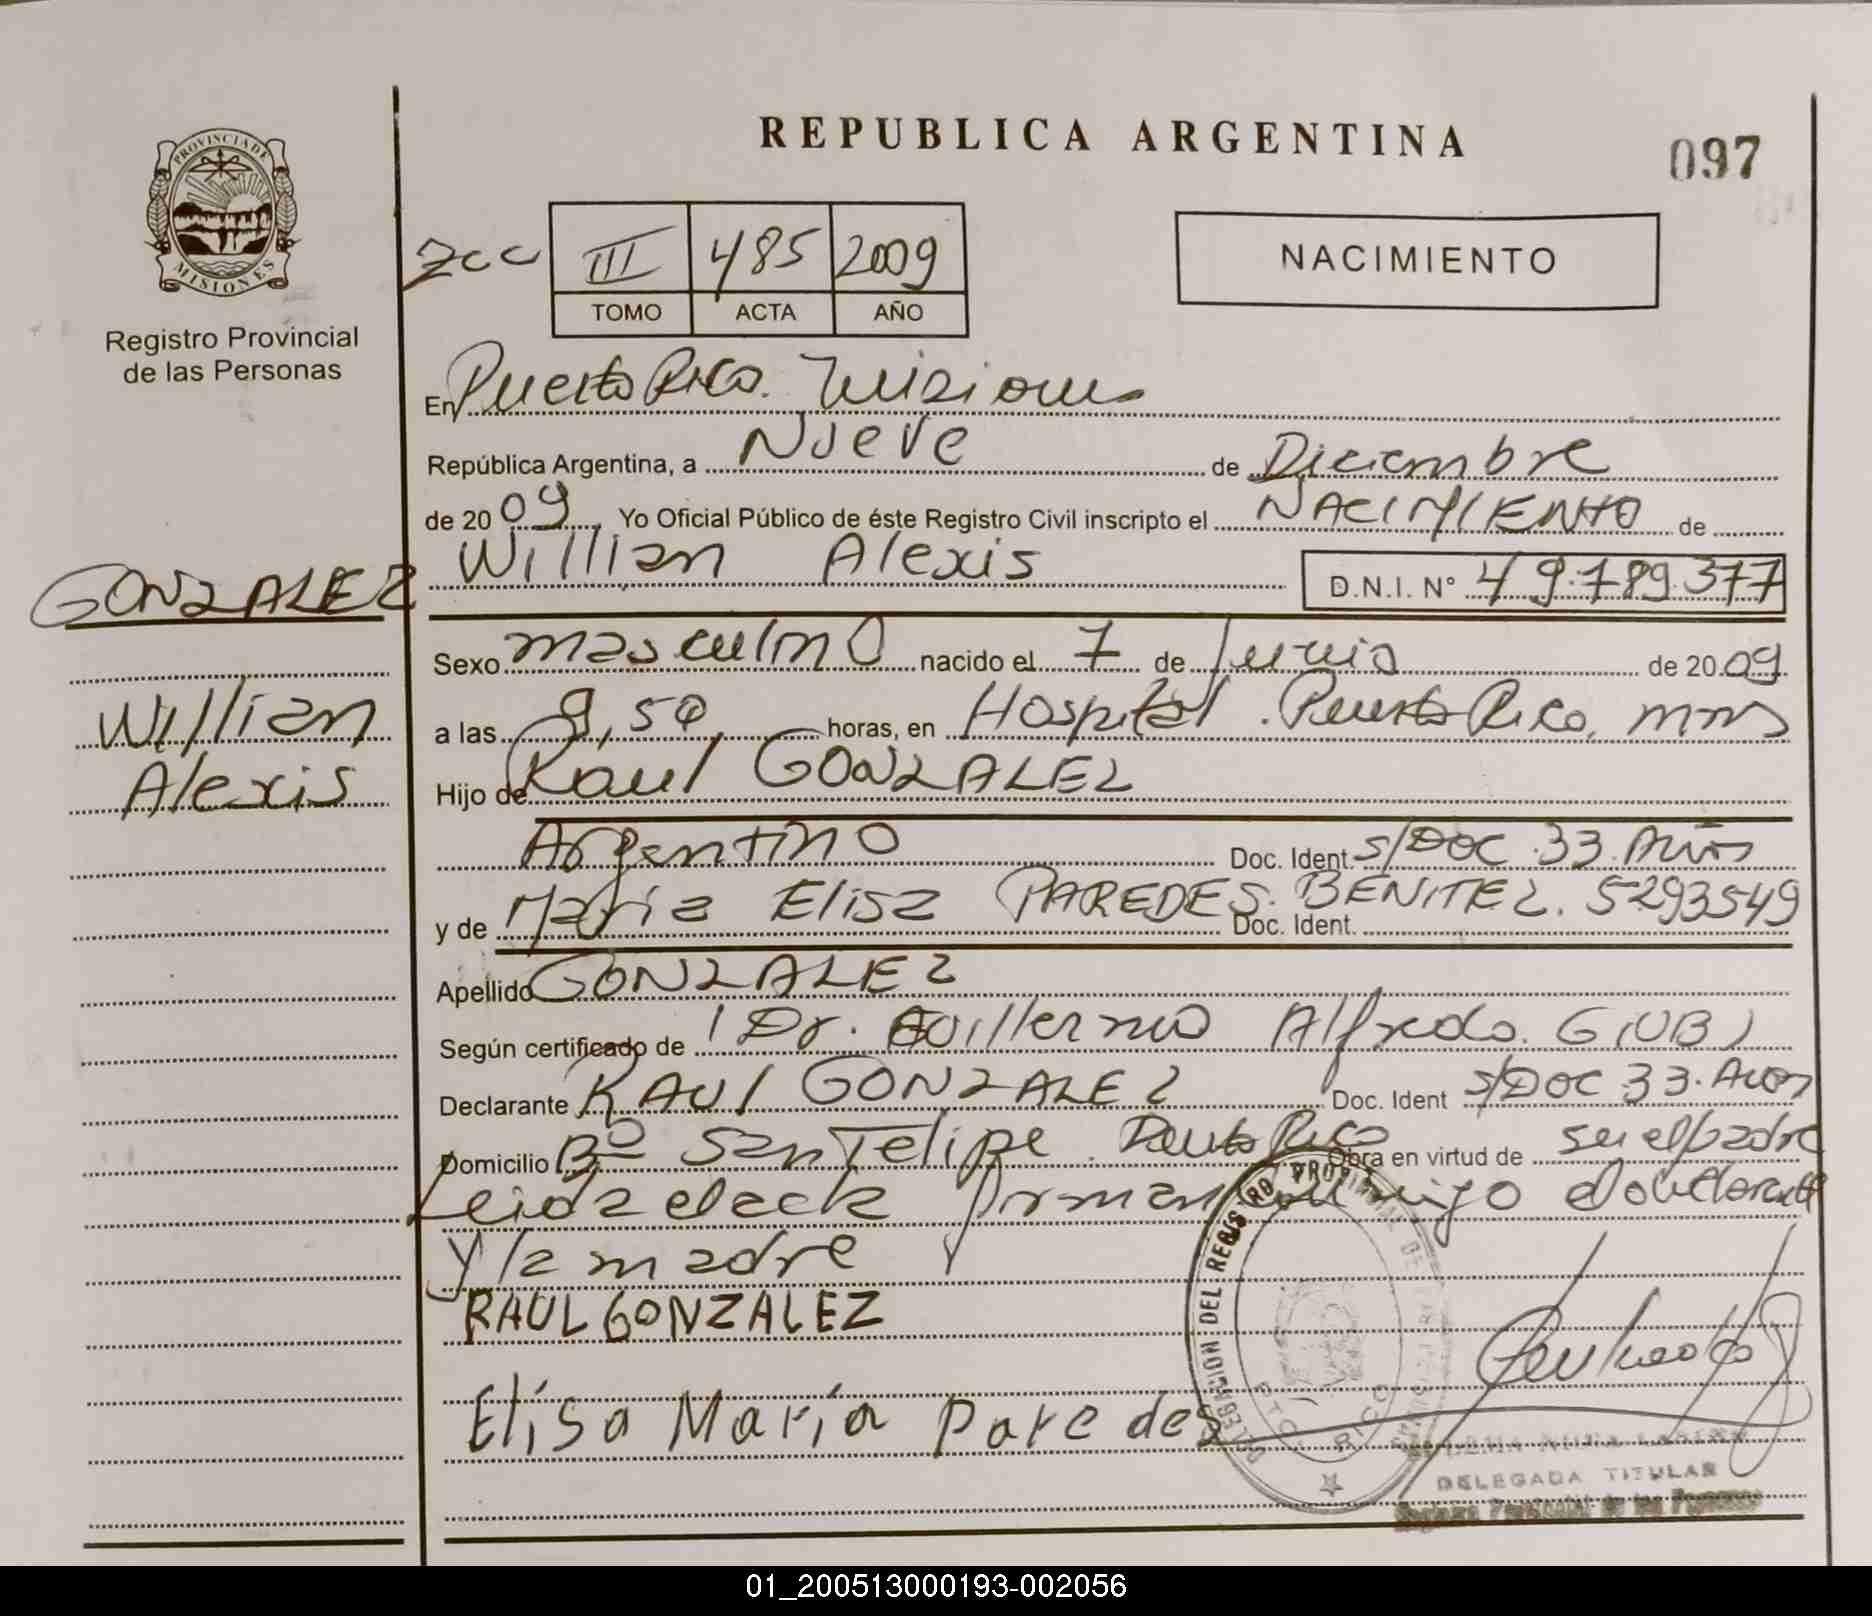 REPUBLICA ARGENTINA
097
PROVINCIA DE
MISIONES
Registro Provincial
de las Personas
III 485 2009
TOMO ACTA AÑO
NACIMIENTO
En Puerto Rico. Misiones
República Argentina, a Nueve de Diciembre
de 2009, Yo Oficial Público de éste Registro Civil inscripto el NACIMIENTO de
Willian Alexis D.N.I. Nº 49.789.377
GONZALEZ
Willian
Alexis
Sexo masculino nacido el 7 de Junio de 2009
a las 9,50 horas, en Hospital. Puerto Rico, mnes
Hijo de Raul GONZALEZ
Argentino Doc. Ident. s/DOC.33.Años
y de María Elisa PAREDES BENITEZ. Doc. Ident. 5293549
Apellido GONZALEZ
Según certificado de Dr. Guillermo Alfredo. GIUBI
Declarante RAUL GONZALEZ Doc. Ident s/DOC 33.Años
Domicilio Bº San Felipe. Puerto Rico Obra en virtud de ser el padre
Leida el acta firman conmigo el declarante
y la madre
RAUL GONZALEZ
Elisa María paredes
DELEGACION DEL REGISTRO PROVINCIAL DE LAS PERSONAS
PTO. RICO
DELEGADA TITULAR
Registro Provincial de las Personas
01_200513000193-002056